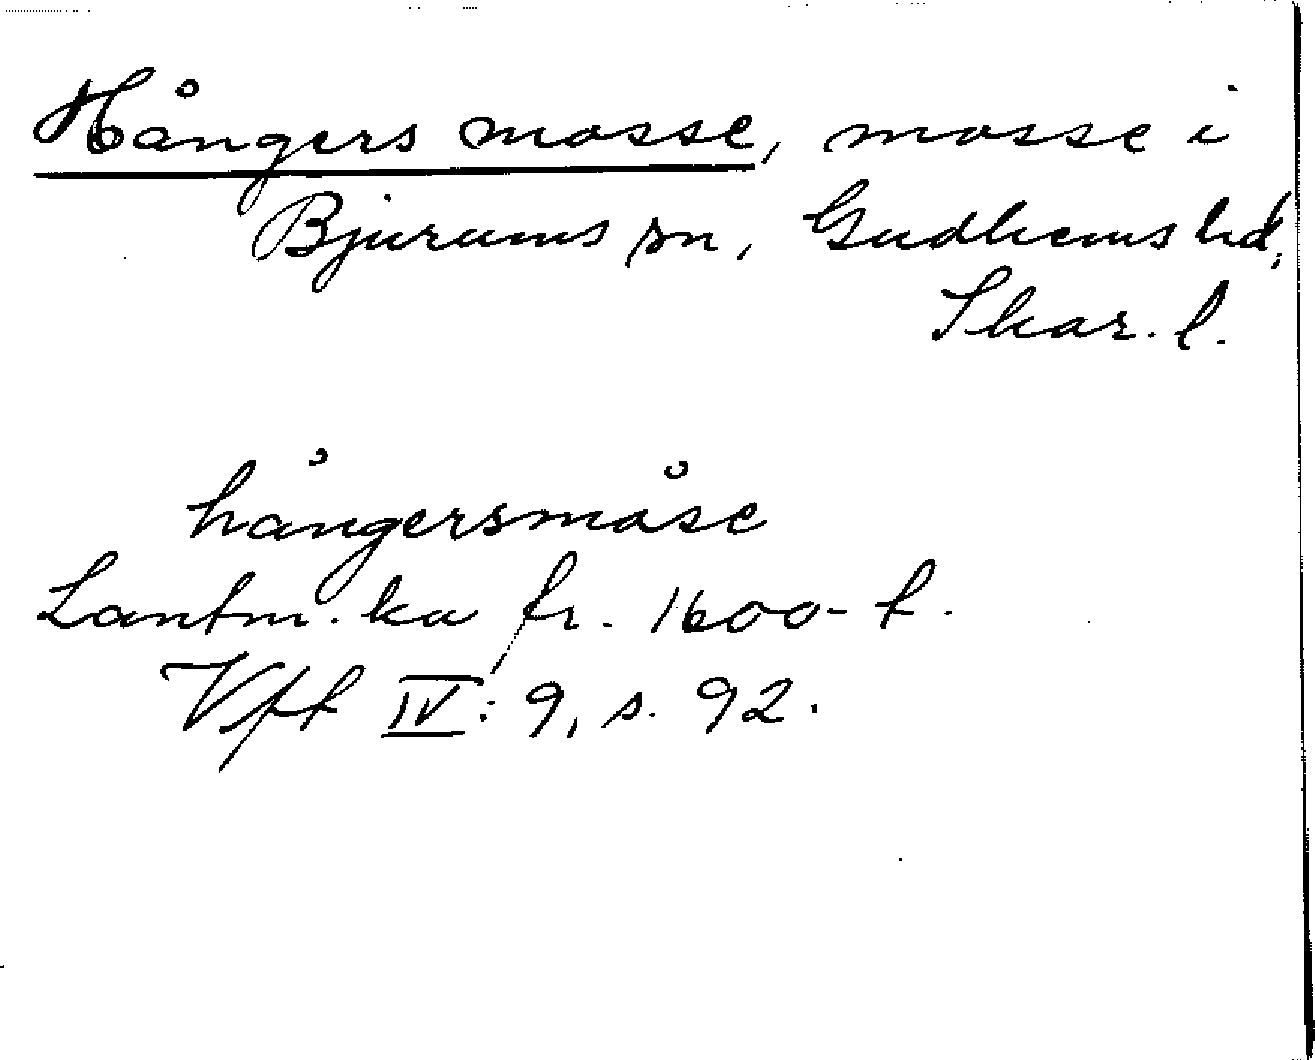 Hångers mosse, mosse i
Bjurums sn, Gudhems hd,
Skar. l.
hångersmåse
Lantm. ka fr. 1600-t.
Vff IV: 9, s. 92.